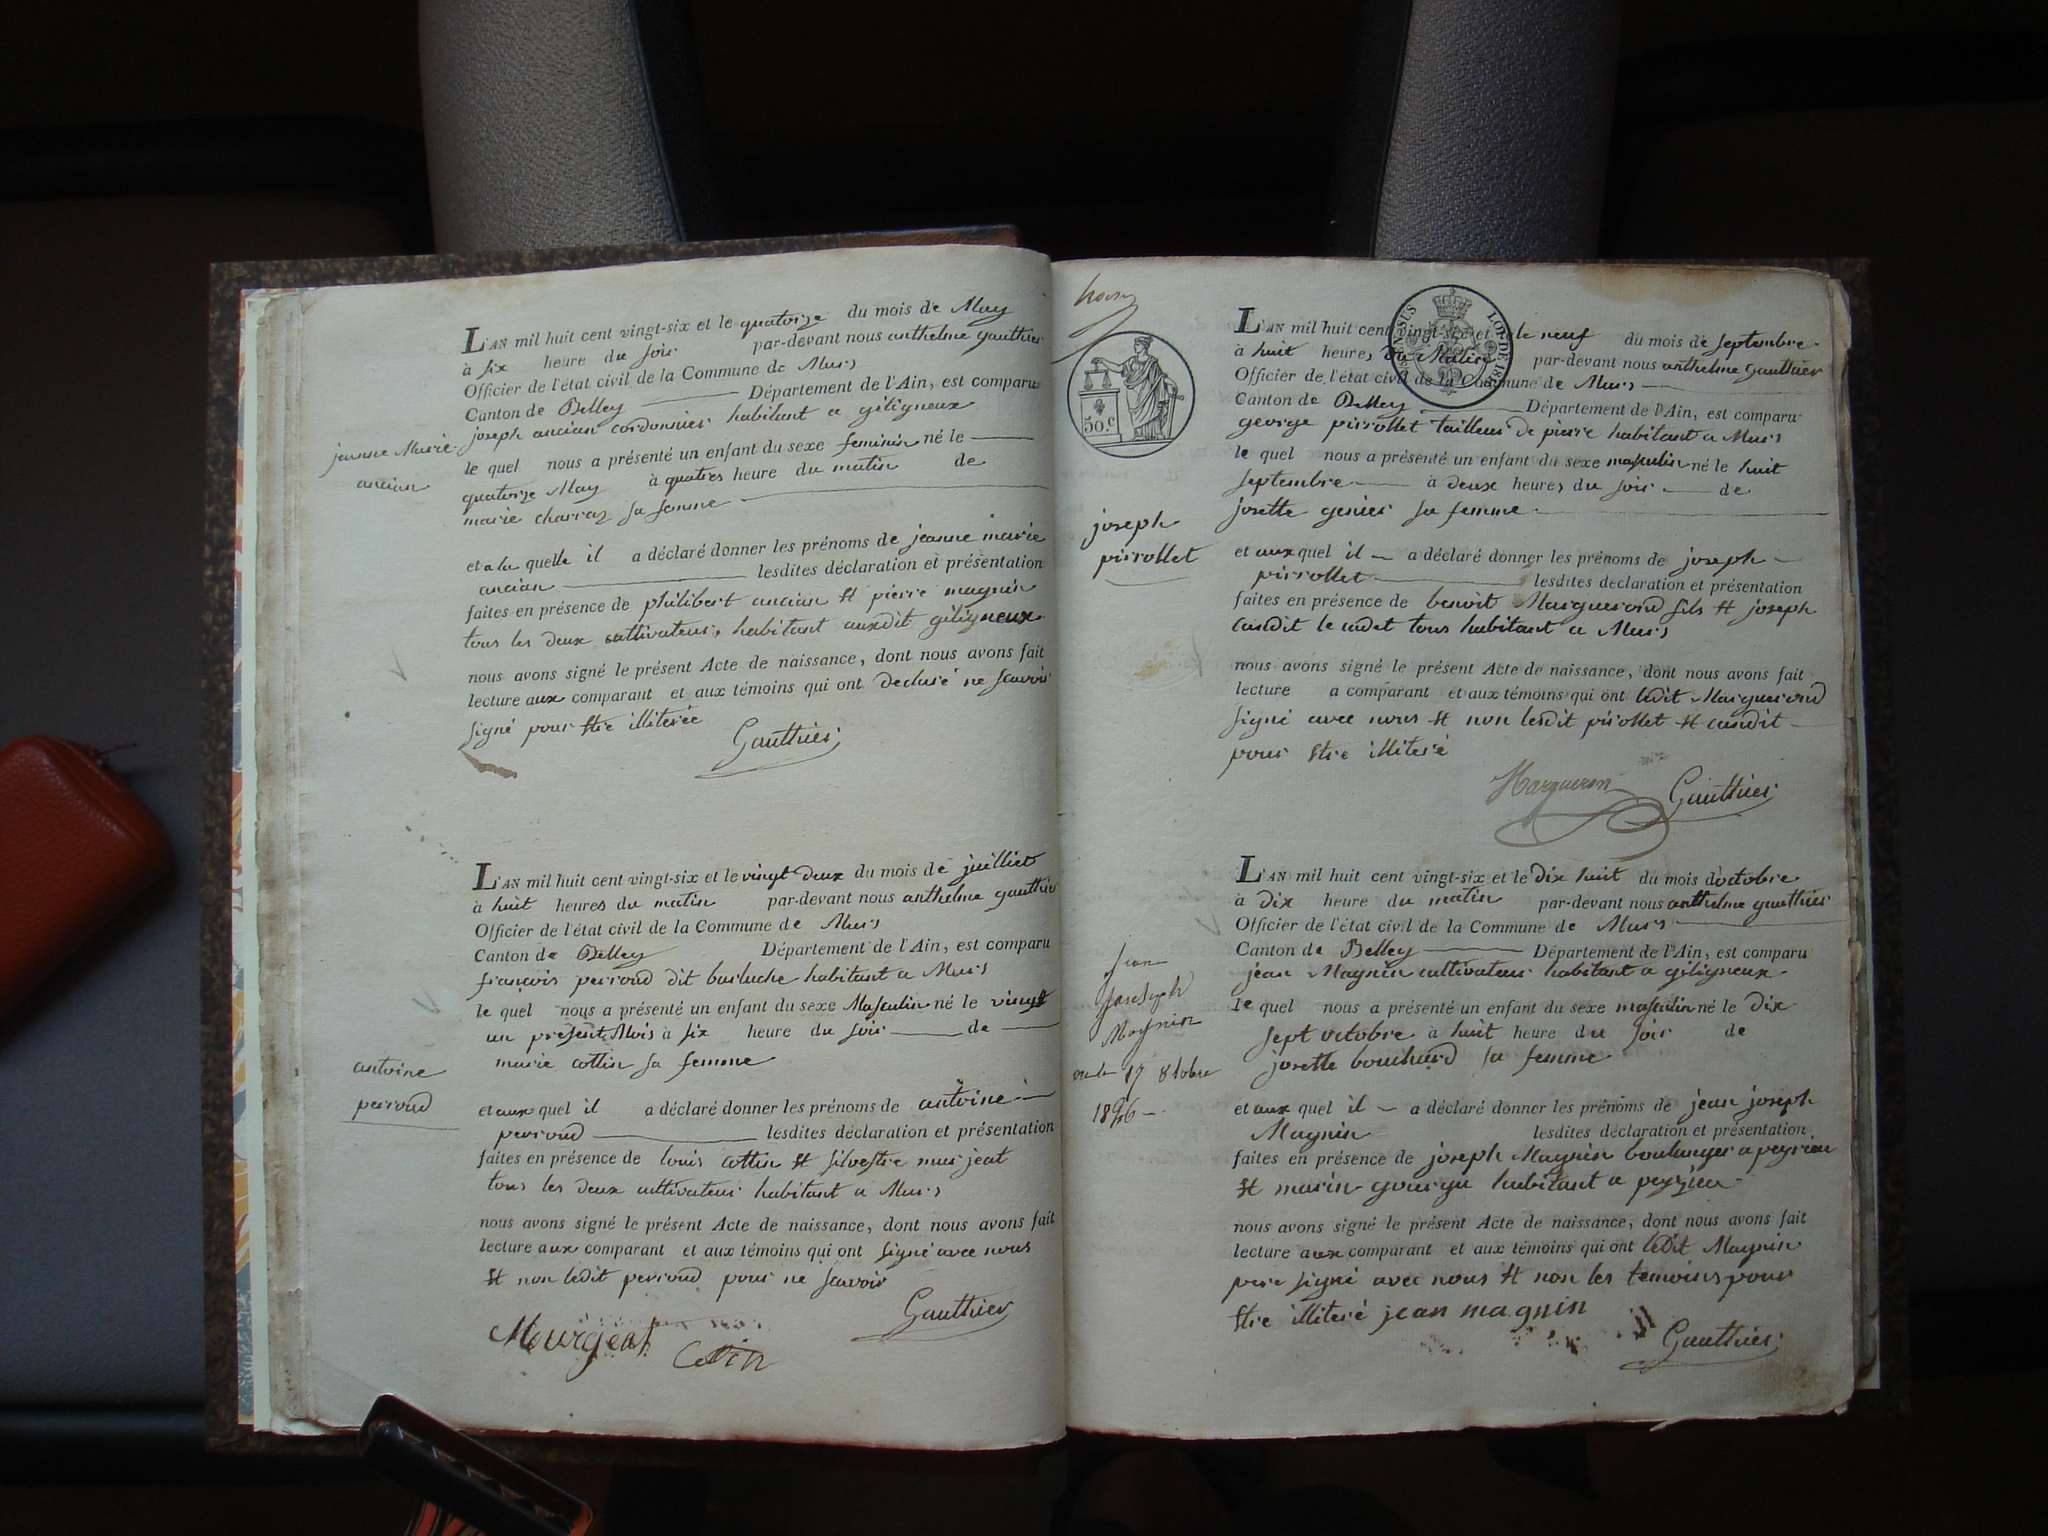 jeanne Marie
ancian
L'AN mil huit cent vingt-six et le quatorze du mois de May
à six heure du soir par-devant nous anthelme gauthier
Officier de l'état civil de la Commune de Murs
Canton de Belley Département de l'Ain, est comparu
joseph ancian cordonnier habitant a giligneux
le quel nous a présenté un enfant du sexe feminin né le
quatorze May à quatres heure du matin de
marie charraz sa femme
et a la quelle il a déclaré donner les prénoms de jeanne marie
ancian lesdites déclaration et présentation
faites en présence de philibert ancian et pierre magnin
tous les deux cultivateurs habitant auxdit giligneux
nous avons signé le présent Acte de naissance, dont nous avons fait
lecture aux comparant et aux témoins qui ont declaré ne savoir
signé pour etre illiterée
Gauthier
antoine
perroud
L'AN mil huit cent vingt-six et le vingt deux du mois de juilliet
à huit heures du matin par-devant nous anthelme gauthier
Officier de l'état civil de la Commune de Murs
Canton de Belley Département de l'Ain, est comparu
françois perroud dit barluche habitant a Murs
le quel nous a présenté un enfant du sexe Masculin né le vingt
un présent Mois à six heure du soir de
marie cottin sa femme
et aux quel il a déclaré donner les prénoms de antoine
perroud lesdites déclaration et présentation
faites en présence de louis cottin et silvestre murjeat
tous les deux cultivateur habitant a Murs
nous avons signé le présent Acte de naissance, dont nous avons fait
lecture aux comparant et aux témoins qui ont signé avec nous
et non ledit perroud pour ne savoir
Gauthier
Mourgeat Cottin
50.c
joseph
pirrollet
L'AN mil huit cent vingt-six et le neuf du mois de septembre
à huit heures du Matin par-devant nous anthelme gauthier
Officier de l'état civil de la Commune de Murs
Canton de Belley Département de l'Ain, est comparu
george pirrollet tailleur de pierre habitant a Murs
le quel nous a présenté un enfant du sexe masculin né le huit
septembre à deux heures du soir de
josette genier sa femme
et aux quel il a déclaré donner les prénoms de joseph
pirrollet lesdites declaration et présentation
faites en présence de benoit Marguerond fils et joseph
candit le cadet tous habitant a Murs
nous avons signé le présent Acte de naissance, dont nous avons fait
lecture a comparant et aux témoins qui ont ledit Marguerond
signé avec nous et non lesdit pirollet et candit
pour etre illiteré
Margueron Gauthier
jean
Joseph
Magnin
17 8tobre
L'AN mil huit cent vingt-six et le dix huit du mois d'octobre
à dix heure du matin par-devant nous anthelme gauthier
Officier de l'état civil de la Commune de Murs
Canton de Belley Département de l'Ain, est comparu
jean Magnin cultivateur habitant a giligneux
le quel nous a présenté un enfant du sexe masculin né le dix
sept octobre à huit heure du soir de
josette bouchard sa femme
et aux quel il a déclaré donner les prénoms de jean joseph
Magnin lesdites déclaration et présentation
faites en présence de joseph Magnin boulanger a peyrieu
et marin habitant a peyrieu
nous avons signé le présent Acte de naissance, dont nous avons fait
lecture aux comparant et aux témoins qui ont ledit Magnin
pere signé avec nous et non les temoins pour
etre illiteré jean magnin
Gauthier